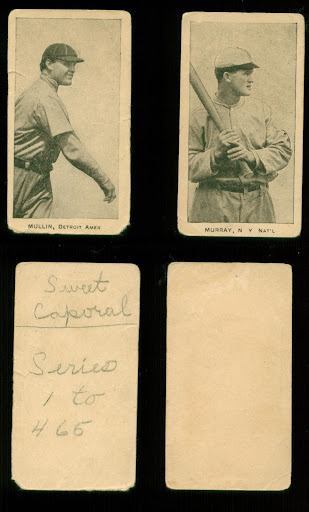 MULLIN, DETROIT AMER
MURRAY, N Y NAT'L
Sweet
Caporal
Series
1 to
465